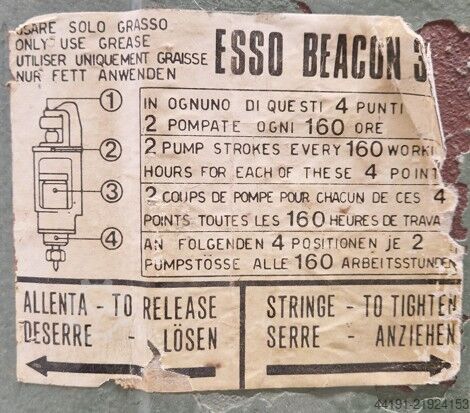 USARE SOLO GRASSO
ONLY USE GREASE
UTILISER UNIQUEMENT GRAISSE
NUR FETT ANWENDEN
ESSO BEACON 3
1
2
3
4
IN OGNUNO DI QUESTI 4 PUNTI
2 POMPATE OGNI 160 ORE
2 PUMP STROKES EVERY 160 WORKI
HOURS FOR EACH OF THESE 4 POINT
2 COUPS DE POMPE POUR CHACUN DE CES 4
POINTS TOUTES LES 160 HEURES DE TRAVA
AN FOLGENDEN 4 POSITIONEN JE 2
PUMPSTÖSSE ALLE 160 ARBEITSSTUNDEN
ALLENTA - TO RELEASE
DESERRE - LÖSEN
STRINGE - TO TIGHTEN
SERRE - ANZIEHEN
44191-21924153